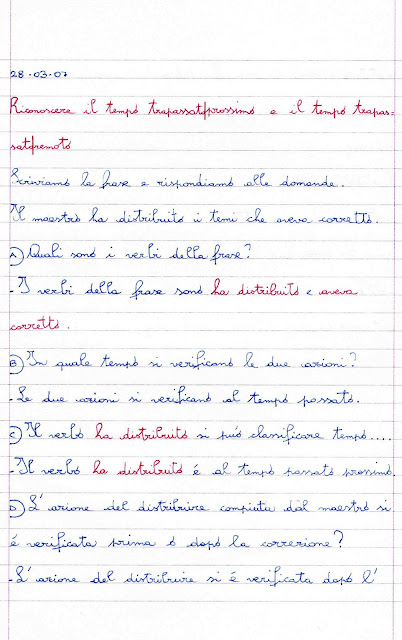 28.03.07
Riconoscere il tempo trapassato prossimo e il tempo trapas=
sato remoto
Scriviamo la frase e rispondiamo alle domande.
Il maestro ha distribuito i temi che aveva corretto.
A) Quali sono i verbi della frase?
- I verbi della frase sono ha distribuito e aveva
corretto.
B) In quale tempo si verificano le due azioni?
- Le due azioni si verificano al tempo passato.
C) Il verbo ha distribuito si può classificare tempo....
- Il verbo ha distribuito é al tempo passato prossimo.
D) L'azione del distribuire compiuta dal maestro si
é verificata prima o dopo la correzione?
- L'azione del distribuire si é verificata dopo l'